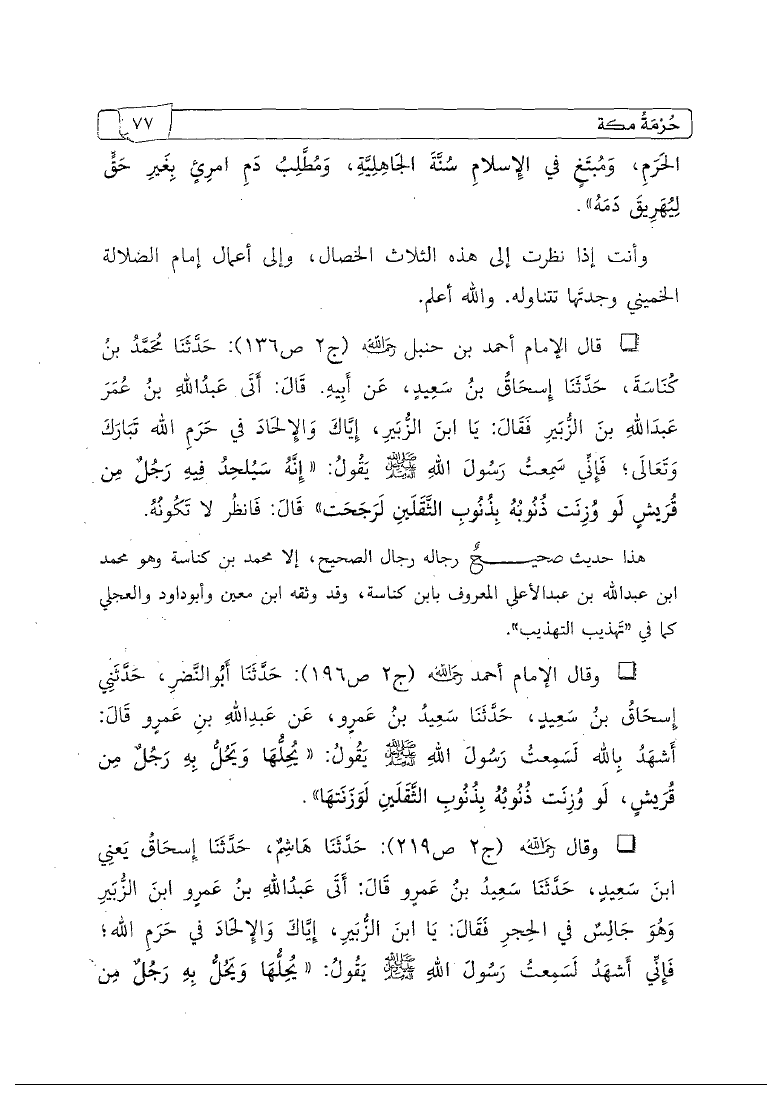 حُرْمَةُ مكة ٧٧
الحَرَمِ، وَمُبْتَغٍ في الإِسلامِ سُنَّةَ الجَاهِلِيَّةِ، وَمُطَّلِبُ دَمِ امرِئٍ بِغَيرِ حَقٍّ
لِيُهَرِيقَ دَمَهُ».
وأنت إذا نظرت إلى هذه الثلاث الخصال، وإلى أعمال إمام الضلالة
الخميني وجدتَها تتناوله. والله أعلم.
❑ قال الإمام أحمد بن حنبل رحمه الله (ج٢ ص١٣٦): حَدَّثَنَا مُحَمَّدُ بنُ
كُنَاسَةَ، حَدَّثَنَا إِسحَاقُ بنُ سَعِيدٍ، عَن أَبِيهِ. قَالَ: أَتَى عَبدُاللهِ بنُ عُمَرَ
عَبدَاللهِ بنَ الزُّبَيرِ فَقَالَ: يَا ابنَ الزُّبَيرِ، إِيَّاكَ وَالإِلحَادَ في حَرَمِ الله تَبَارَكَ
وَتَعَالَى؛ فَإِنِّي سَمِعتُ رَسُولَ اللهِ ﷺ يَقُولُ: «إِنَّهُ سَيُلحِدُ فِيهِ رَجُلٌ مِن
قُرَيشٍ لَو وُزِنَت ذُنُوبُهُ بِذُنُوبِ الثَّقَلَينِ لَرَجَحَت» قَالَ: فَانظُر لا تَكُونُهُ.
هذا حديث صحيــــحٌ رجاله رجال الصحيح، إلا محمد بن كناسة وهو محمد
ابن عبدالله بن عبدالأعلى المعروف بابن كناسة، وقد وثقه ابن معين وأبوداود والعجلي
كما في «تَهذيب التهذيب».
❑ وقال الإمام أحمد رحمه الله (ج٢ ص١٩٦): حَدَّثَنَا أَبُوالنَّضرِ، حَدَّثَنِي
إِسحَاقُ بنُ سَعِيدٍ، حَدَّثَنَا سَعِيدُ بنُ عَمرٍو، عَن عَبدِاللهِ بنِ عَمرٍو قَالَ:
أَشهَدُ بِالله لَسَمِعتُ رَسُولَ اللهِ ﷺ يَقُولُ: «يُحِلُّهَا وَيَحُلُّ بِهِ رَجُلٌ مِن
قُرَيشٍ، لَو وُزِنَت ذُنُوبُهُ بِذُنُوبِ الثَّقَلَينِ لَوَزَنَتهَا».
❑ وقال رحمه الله (ج٢ ص٢١٩): حَدَّثَنَا هَاشِمٌ، حَدَّثَنَا إِسحَاقُ يَعنِي
ابنَ سَعِيدٍ، حَدَّثَنَا سَعِيدُ بنُ عَمرٍو قَالَ: أَتَى عَبدُاللهِ بنُ عَمرٍو ابنَ الزُّبَيرِ
وَهُوَ جَالِسٌ في الحِجرِ فَقَالَ: يَا ابنَ الزُّبَيرِ، إِيَّاكَ وَالإِلحَادَ في حَرَمِ الله؛
فَإِنِّي أَشهَدُ لَسَمِعتُ رَسُولَ اللهِ ﷺ يَقُولُ: «يُحِلُّهَا وَيَحُلُّ بِهِ رَجُلٌ مِن